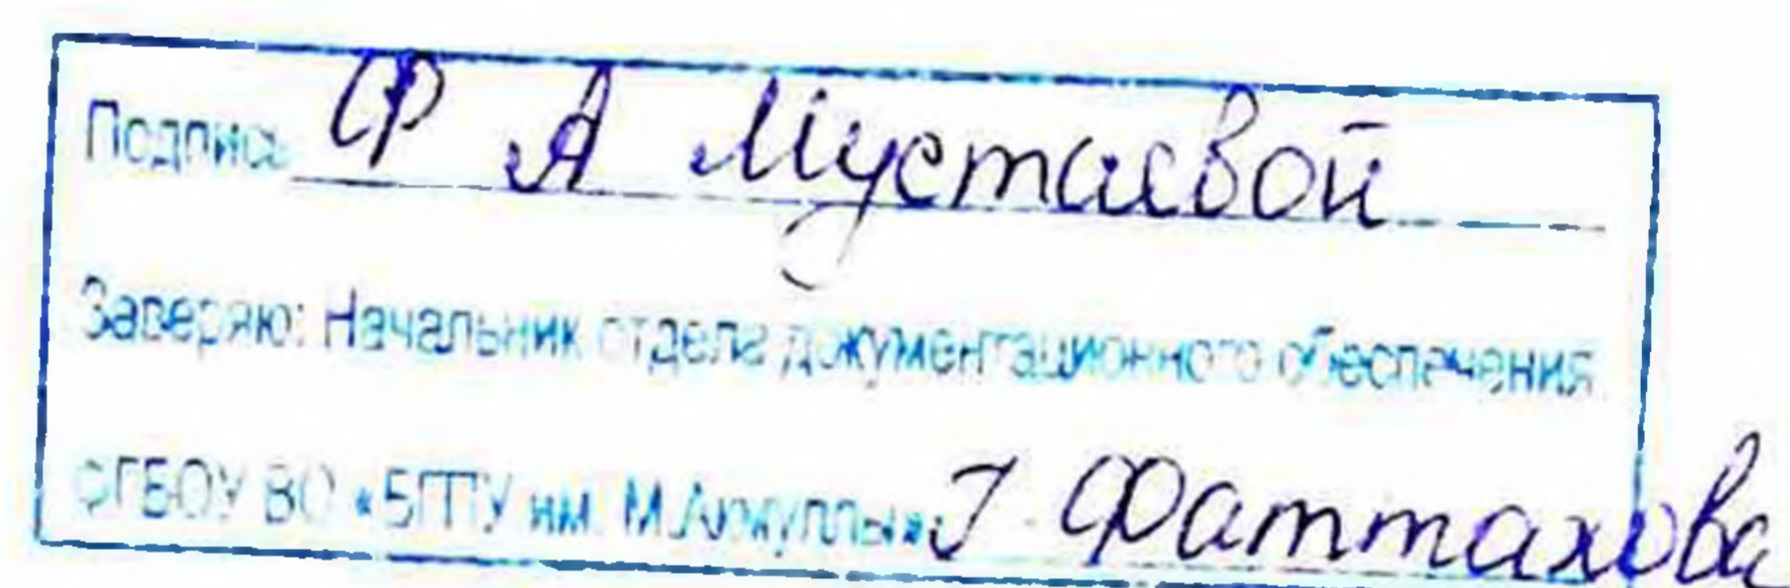 Подпись Ф А Мустаевой
Заверяю: Начальник отдела документационного обеспечения
ФГБОУ ВО «БГПУ им. М.Акмуллы» Г Фаттахова